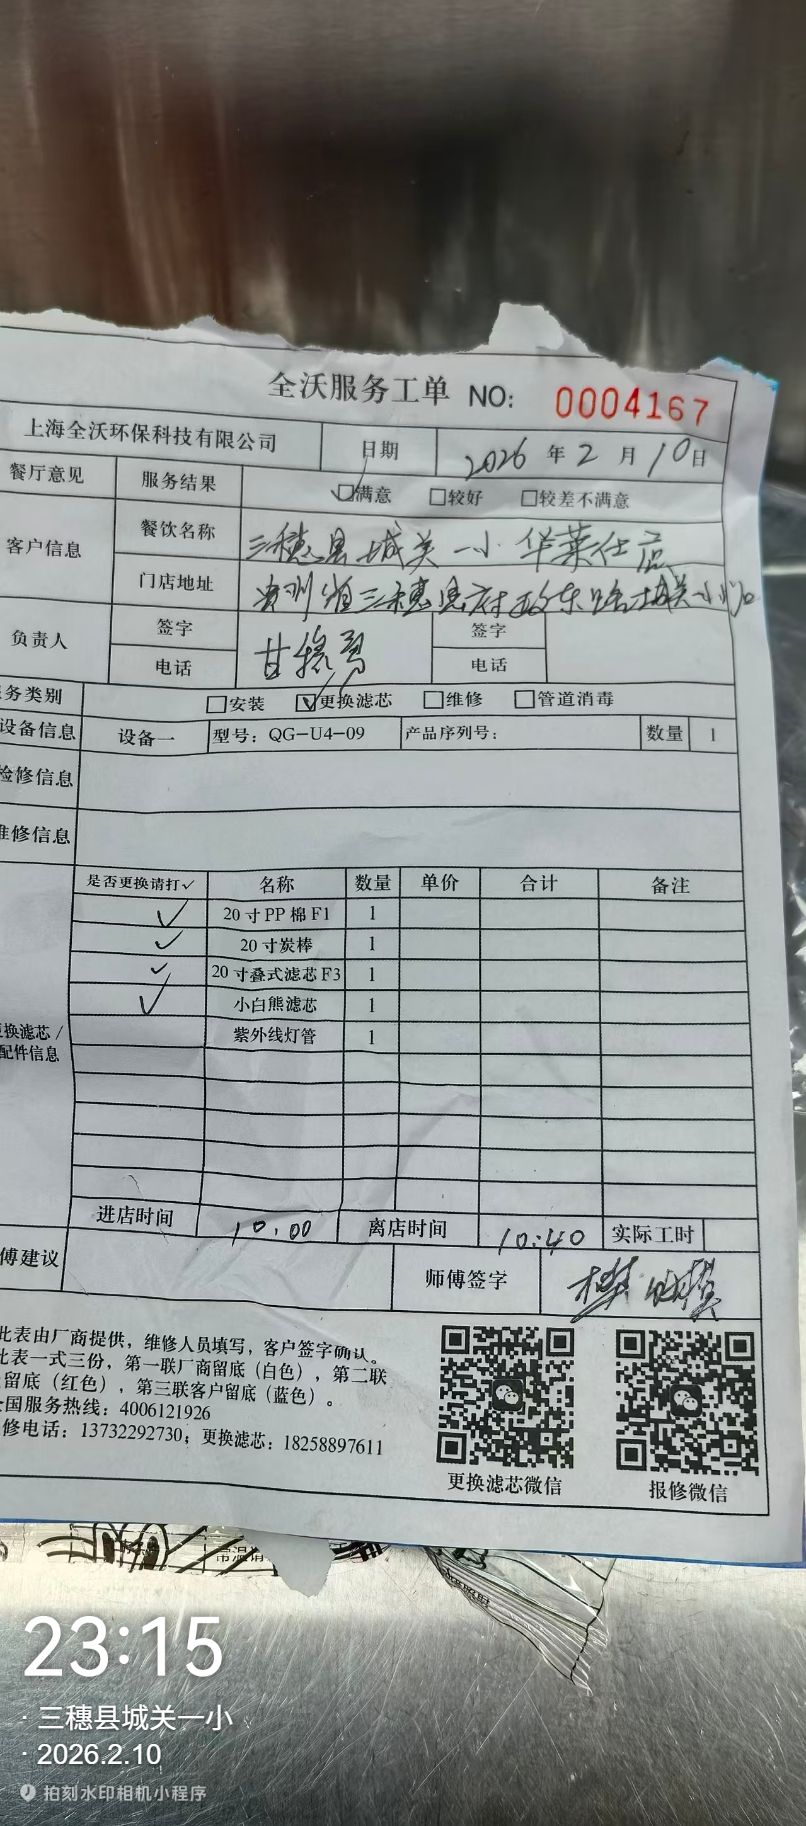 全沃服务工单 NO: 0004167
上海全沃环保科技有限公司 日期 2026 年 2 月 10 日
餐厅意见 服务结果 ☑满意 □较好 □较差不满意
客户信息 餐饮名称 三穗县城关一小华莱仕店
门店地址 贵州省三穗县府政东路城关一小
负责人 签字 甘 签字
电话 电话
务类别 □安装 ☑更换滤芯 □维修 □管道消毒
设备信息 设备一 型号：QG-U4-09 产品序列号： 数量 1
检修信息
维修信息
是否更换请打✓ 名称 数量 单价 合计 备注
✓ 20寸PP棉F1 1
✓ 20寸炭棒 1
✓ 20寸叠式滤芯F3 1
✓ 小白熊滤芯 1
紫外线灯管 1
换滤芯/
配件信息
进店时间 10:00 离店时间 10:40 实际工时
傅建议 师傅签字 樊
此表由厂商提供，维修人员填写，客户签字确认。
此表一式三份，第一联厂商留底（白色），第二联
留底（红色），第三联客户留底（蓝色）。
全国服务热线：4006121926
修电话：13732292730；更换滤芯：18258897611
更换滤芯微信 报修微信
常温请
23:15
· 三穗县城关一小
· 2026.2.10
拍刻水印相机小程序